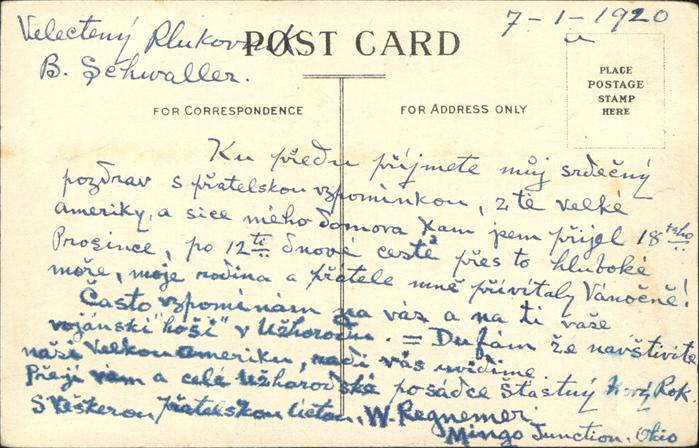 7-1-1920
Velectený Plukovník
B. Schwaller.
POST CARD
PLACE
POSTAGE
STAMP
HERE
FOR CORRESPONDENCE
FOR ADDRESS ONLY
Ku předu příjmete můj srdečný
pozdrav s přatelskou vzpomínkou, z té velké
Ameriky, a sice mého domova kam jsem přijel 18
Prosince, po 12ti dnové cestě přes to hluboké
moře, moje rodina a přátele mně přivítaly Vánočně!
Často vzpomínám na vás a na ti vaše
vojánski "hóši" v Užhorodu. = Dufám že navštivite
naši Velkou Ameriku, radi vás uvidíme.
Přeji vam a celé Užhorodské posádce štastný Nový Rok
S Veškerou přatelskou úctou, W. Regnemer
Mingo Junction. Ohio